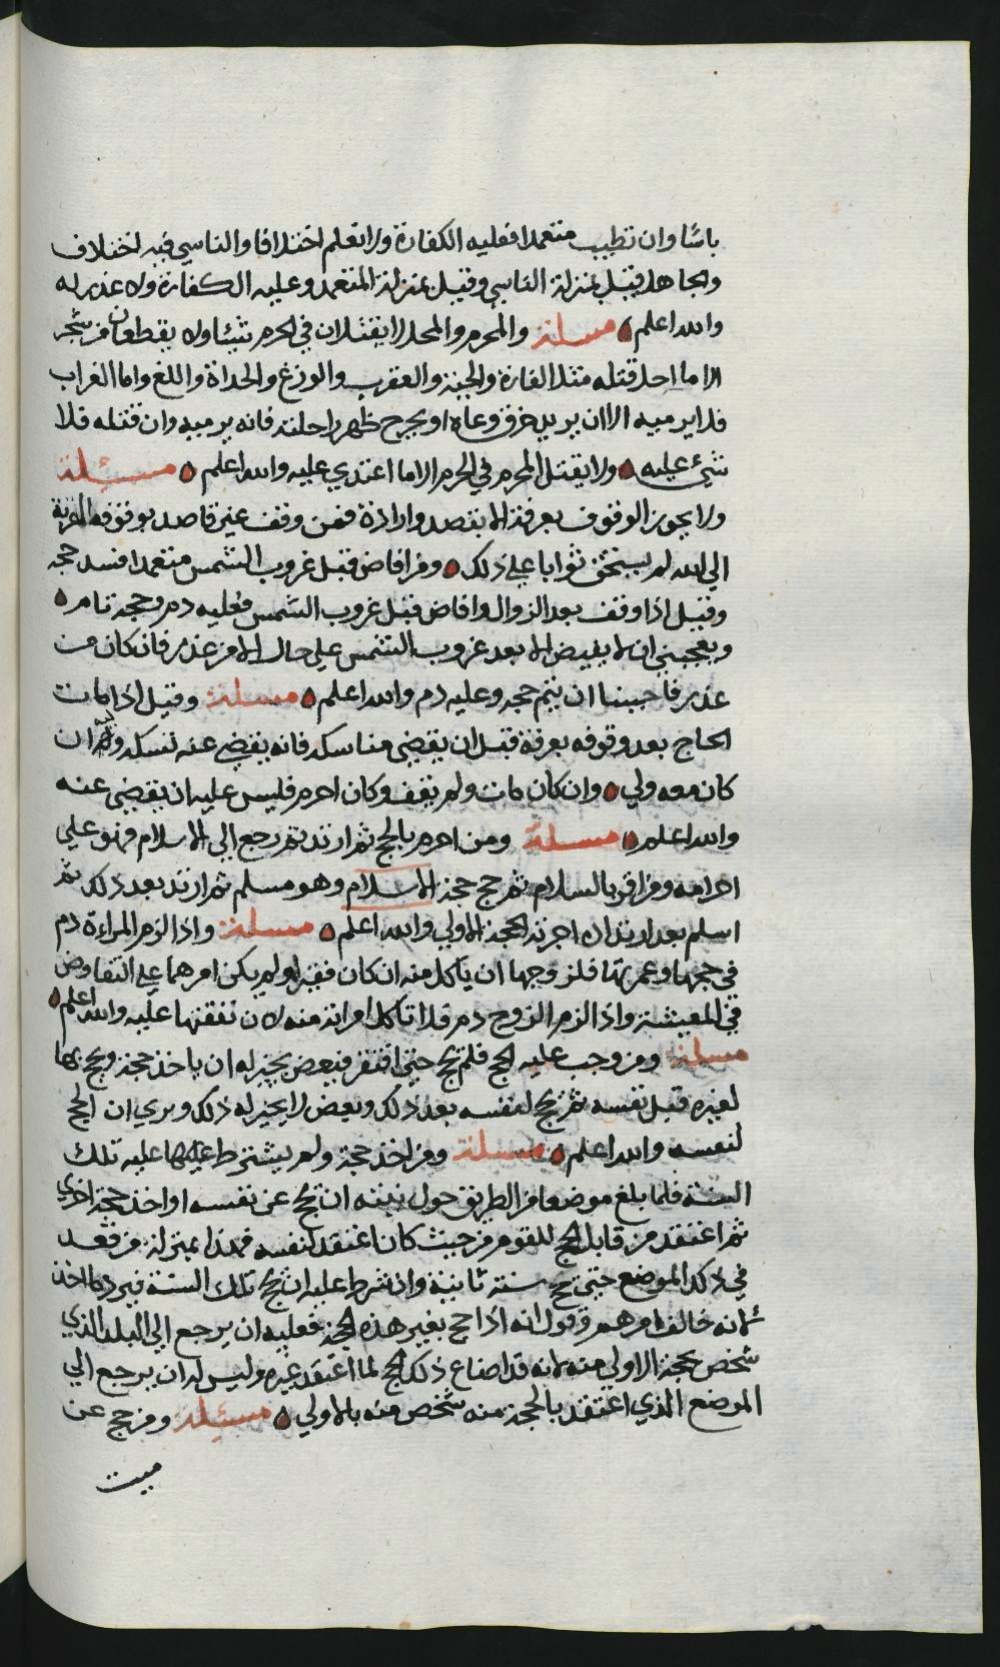 باسا وان تطيب متعمدا فعليه الكفارة ولا نعلم اختلافا والناسي فيه اختلاف
والجاهل قيل بمنزلة الناسي وقيل بمنزلة المتعمد وعليه الكفارة ولا عذر له
والله اعلم مسئلة والمحرم والمحل لا يقتلان في الحرم شيئا ولا يقطعان من شجر
الا ما احل قتله مثل الفارة والحية والعقرب والوزغ والحداة واللغ واما الغراب
فلا يرميه الا ان يريد خرق وعاه او يجرح ظهر راحلته فانه يرميه وان قتله فلا
شئ عليه ولا يقتل المحرم في الحرم الا ما اعتدي عليه والله اعلم مسئلة
ولا يجوز الوقوف بعرفة الا بقصد وارادة فمن وقف غير قاصد بوقوفه القربة
الي الله لم يستحق ثوابا علي ذلك ومن افاض قبل غروب الشمس متعمدا فسد حجه
وقيل اذا وقف بعد الزوال وافاض قبل غروب الشمس فعليه دم وحجه تام
ويعجبني ان لا يفيض الا بعد غروب الشمس علي حال الا من عذر فان كان من
عذر فاحببنا ان يتم حجه وعليه دم والله اعلم مسئلة وقيل اذا مات
الحاج بعد وقوفه بعرفة قبل ان يقضي مناسكه فانه يقضي عنه نسكه وليه ان
كان معه ولي وان كان مات ولم يقف وكان احرم فليس عليه ان يقضي عنه
والله اعلم مسئلة ومن احرم بالحج ثم ارتد ثم رجع الي الاسلام فهو علي
احرامه ومن اقر بالسلام ثم حج حجة الاسلام وهو مسلم ثم ارتد بعد ذلك ثم
اسلم بعد ارتداده اجزته الحجة الاولي والله اعلم مسئلة واذا لزم المراءة دم
في حجها وعمرتها فلزوجها ان ياكل منه ان كان فقيرا ولم يكن امرهما علي التفاوض
في المعيشة واذا لزم الزوج دم فلا تاكل امراته منه لان نفقتها عليه والله اعلم
مسئلة ومن وجب عليه الحج فلم يحج حتي افتقر فبعض يجيز له ان ياخذ حجة ويحج بها
لغيره قبل نفسه ثم يحج لنفسه بعد ذلك وبعض لا يجيز له ذلك ويري ان الحج
لنفسه والله اعلم مسئلة ومن اخذ حجة ولم يشترط عليه اهلها عليه تلك
السنة فلما بلغ موضعا من الطريق حول نيته ان يحج عن نفسه او اخذ حجة اخري
ثم اعتقد من قابل الحج للقوم من حيث كان اعتقد لنفسه فهذا بمنزلة من قعد
في ذلك الموضع حتي حج سنة ثانية وان شرط عليه ان يحج تلك السنة فيرد ما اخذ
لانه خالف امرهم وقول انه اذا حج بغير هذه الحجة فعليه ان يرجع الي البلد الذي
شخص بحجة الاولي منه لانه قد اضاع ذلك الحج لما اعتقد غيره وليس له ان يرجع الي
الموضع الذي اعتقد بالحجة منه شخص منه بالاولي مسئلة ومن حج عن
ميت